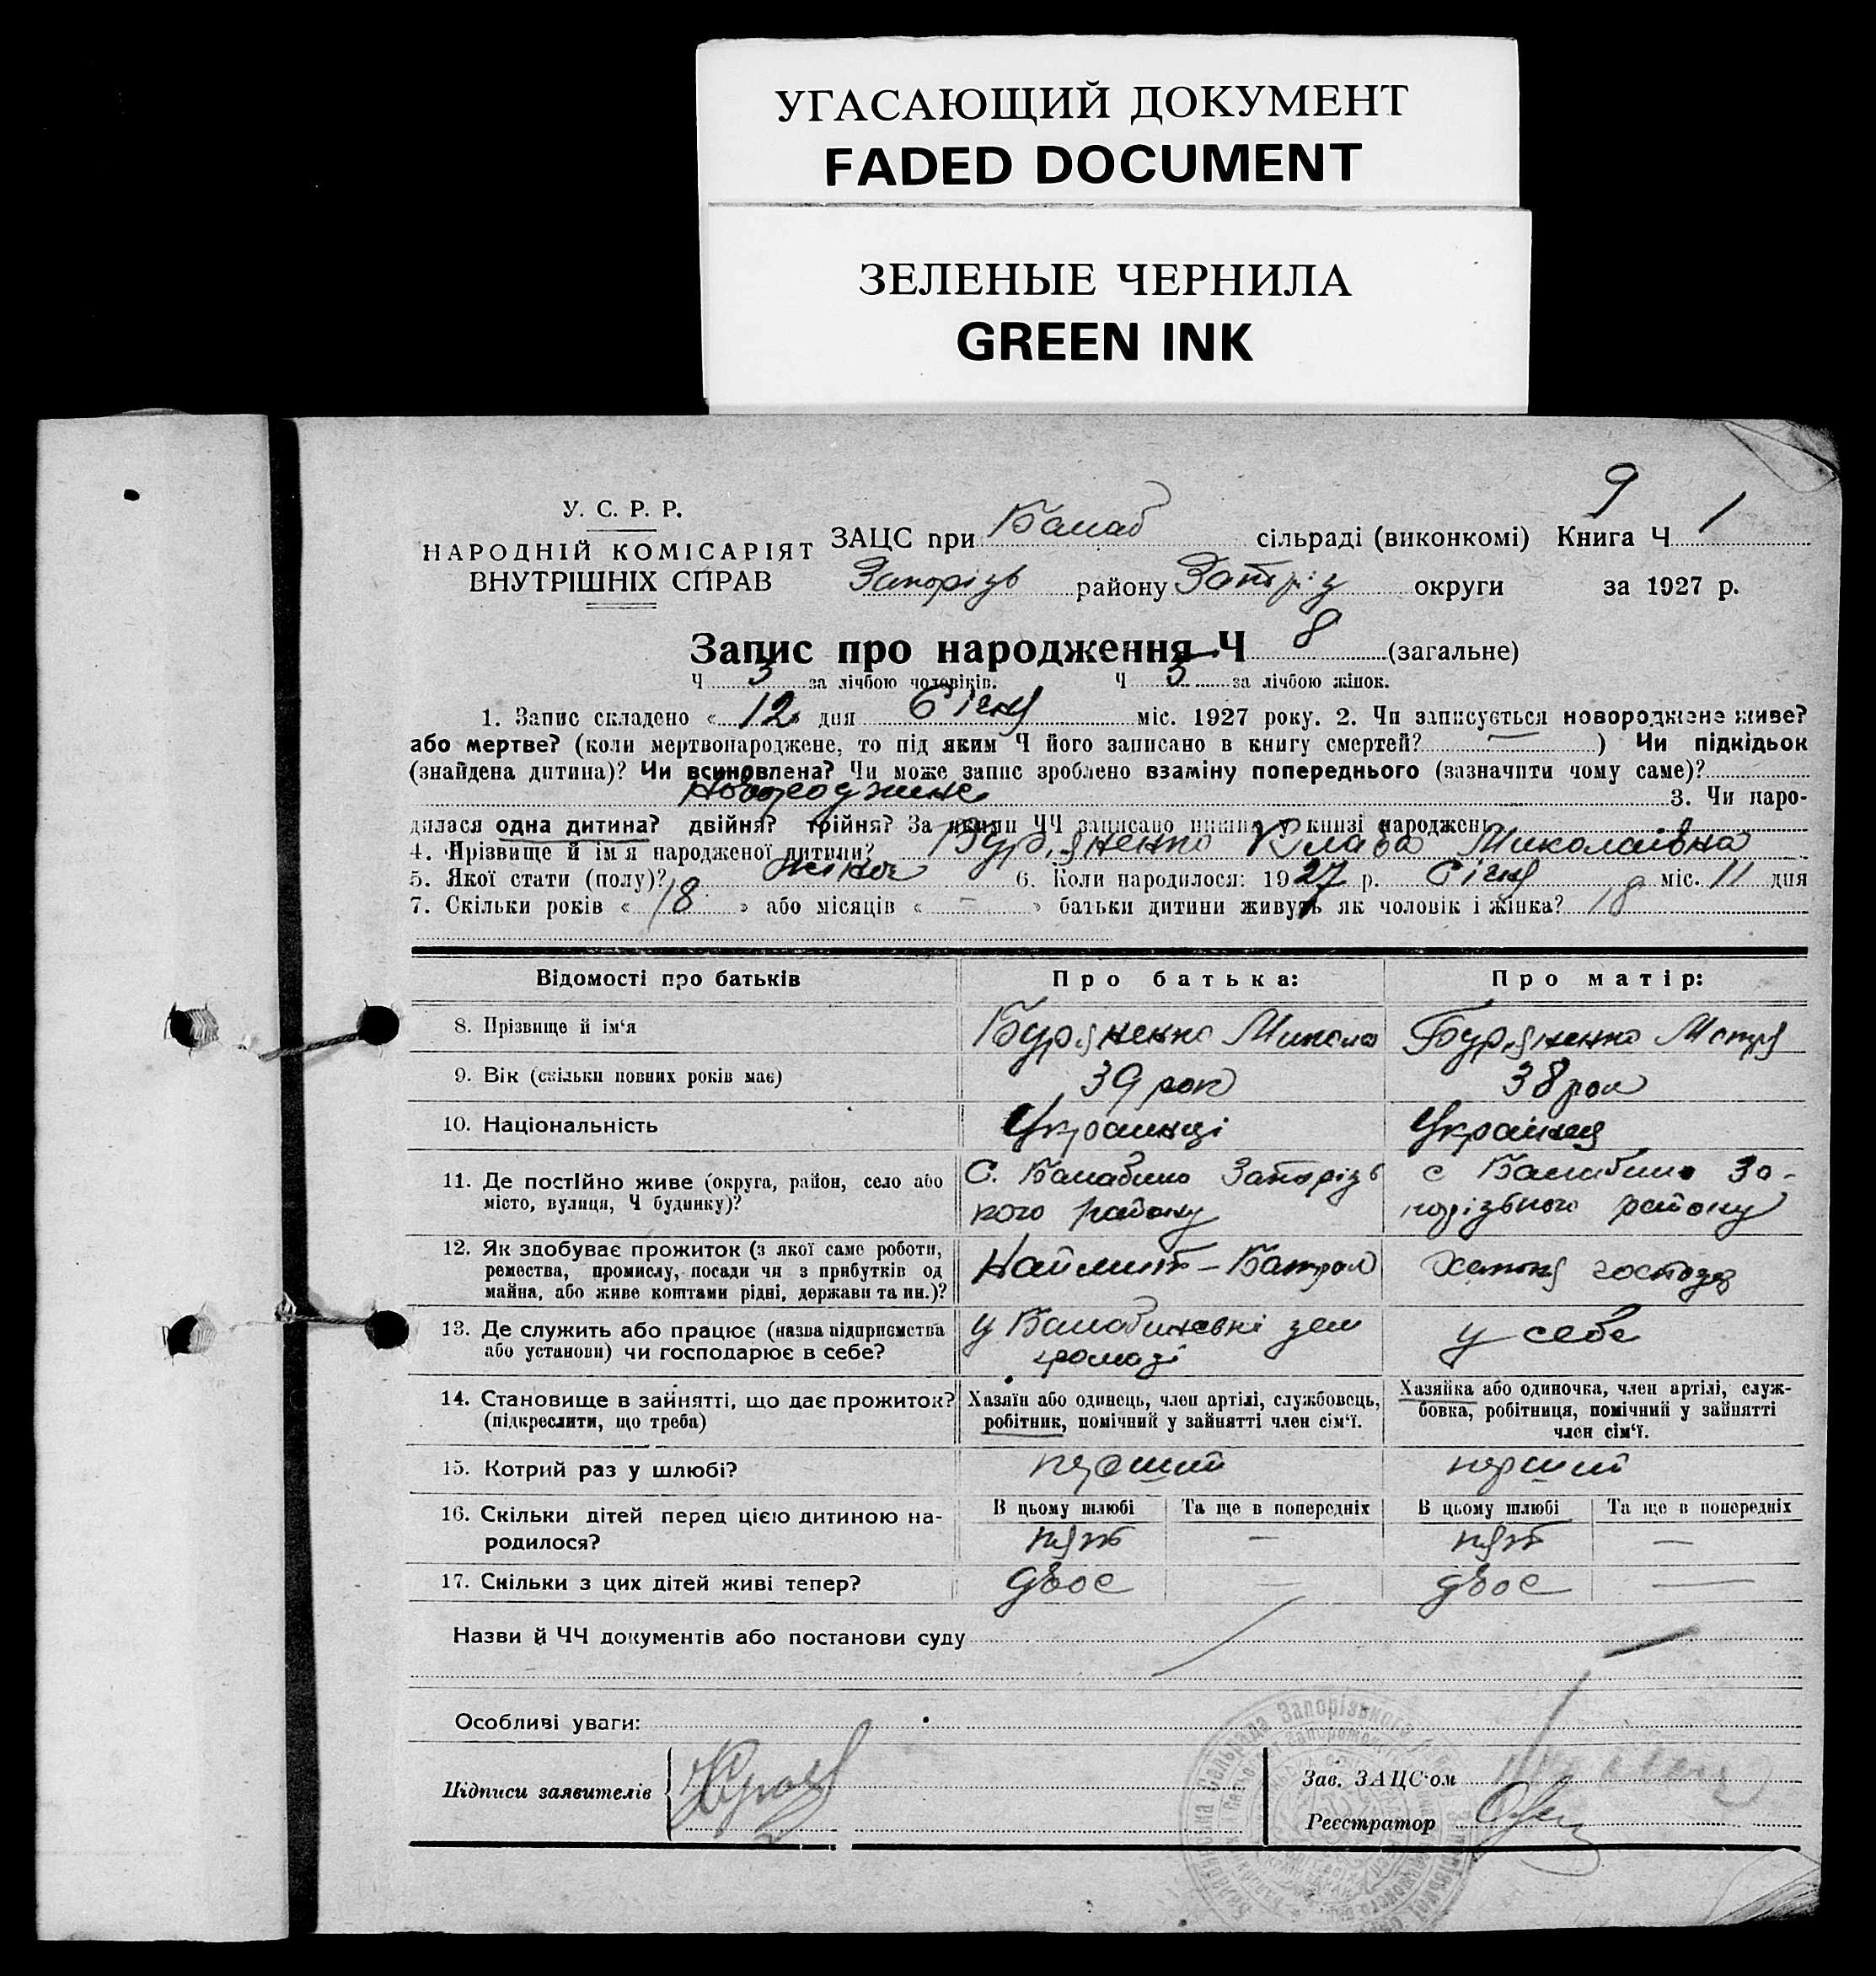 УГАСАЮЩИЙ ДОКУМЕНТ
FADED DOCUMENT
ЗЕЛЕНЫЕ ЧЕРНИЛА
GREEN INK
9
У. С. Р. Р.
НАРОДНІЙ КОМІСАРІЯТ
ВНУТРІШНІХ СПРАВ
ЗАЦС при Балаб сільраді (виконкомі) Книга Ч 1
Запорізь району Запоріз округи за 1927 р.
Запис про народження Ч 8 (загальне)
Ч 3 за лічбою чоловіків. Ч 5 за лічбою жінок.
1. Запис складено « 12 » дня Січня міс. 1927 року. 2. Чи записується новороджене живе?
або мертве? (коли мертвонароджене, то під яким Ч його записано в книгу смертей? — ) Чи підкідьок
(знайдена дитина)? Чи всиновлена? Чи може запис зроблено взаміну попереднього (зазначити чому саме)?
Новороджене 3. Чи наро-
дилася одна дитина? двійня? трійня? За якими ЧЧ записано инших у книзі народжень
4. Прізвище й ім'я народженої дитини? Буряненко Клава Миколаївна
5. Якої стати (полу)? жіноч 6. Коли народилося: 1927 р. Січня міс. 11 дня
7. Скільки років « 18 » або місяців « – » батьки дитини живуть як чоловік і жінка? 18
Відомості про батьків Про батька: Про матір:
8. Прізвище й ім'я Буряненко Микола Буряненко Мотря
9. Вік (скільки повних років має) 39 рок 38 рок
10. Національність Українці Українця
11. Де постійно живе (округа, район, село або місто, вулиця, Ч будинку)?
С. Балабино Запорізь
кого району
с Балабино За-
порізького району
12. Як здобуває прожиток (з якої саме роботи,
ремества, промислу, посади чи з прибутків од
майна, або живе коштами рідні, держави та ин.)?
Наймит – Батрак
Хатня господар
13. Де служить або працює (назва підприємства
або установи) чи господарює в себе?
у Балабинській зем
громаді
у себе
14. Становище в зайнятті, що дає прожиток?
(підкреслити, що треба)
Хазяїн або одинець, член артілі, службовець,
робітник, помічний у зайнятті член сім'ї.
Хазяйка або одиночка, член артілі, служ-
бовка, робітниця, помічний у зайнятті
член сім'ї.
15. Котрий раз у шлюбі? перший перший
16. Скільки дітей перед цією дитиною на-
родилося?
В цьому шлюбі Та ще в попередніх В цьому шлюбі Та ще в попередніх
пять — пять —
17. Скільки з цих дітей живі тепер? двоє — двоє —
Назви й ЧЧ документів або постанови суду
Особливі уваги:
Підписи заявителів
Зав. ЗАЦС'ом
Реєстратор
Сельрада Запорізького